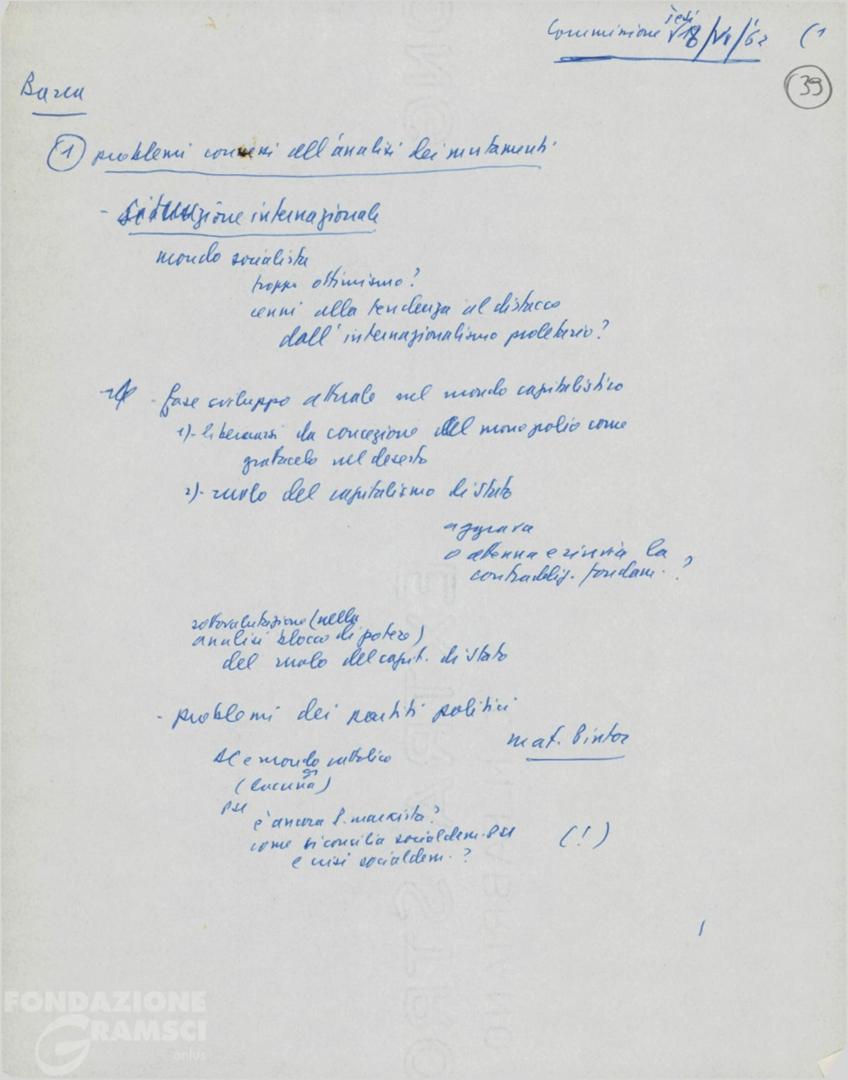 Commissione tesi 18/VI/62 (1
39
Barca
1 problemi connessi all'analisi dei mutamenti
- situazione internazionale
mondo socialista
troppo ottimismo?
cenni alla tendenza al distacco
dall'internazionalismo proletario?
- fase sviluppo attuale nel mondo capitalistico
1)- liberarsi da concezione del monopolio come
grattacielo nel deserto
2)- ruolo del capitalismo di stato
aggrava
o attenua e rinvia la
contraddiz. fondam. ?
sottovalutazione (nella
analisi blocco di potere)
del ruolo del capit. di stato
- problemi dei partiti politici
mat. Pintor
DC e mondo cattolico
(lacuna)
PSI
è ancora P. marxista?
come si concilia socialdem. PSI (!)
e crisi socialdem. ?
1
FONDAZIONE
GRAMSCI
onlus